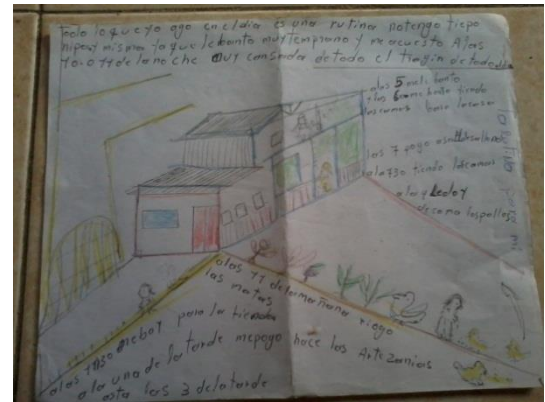 todo lo que yo ago en el dia es una rutina no tengo tiepo
ni por mi misma ya que lebanto muy temprano y me acuesto Alas
10:0 11 de la no che muy cansada de todo el tragin de todo el dia
alas 5 me le banto
alas 6 me baño tiendo
las camas baro la casa
las 7 pogo
ala 730 tiendo las camas
ala y Le doy
de coma los pollos
alas 11 de la mañana riego
las matas
alas 1130 me boy para la tienda
a la una de la tarde me pogo hace las Arte zanias
asta las 3 de la tarde